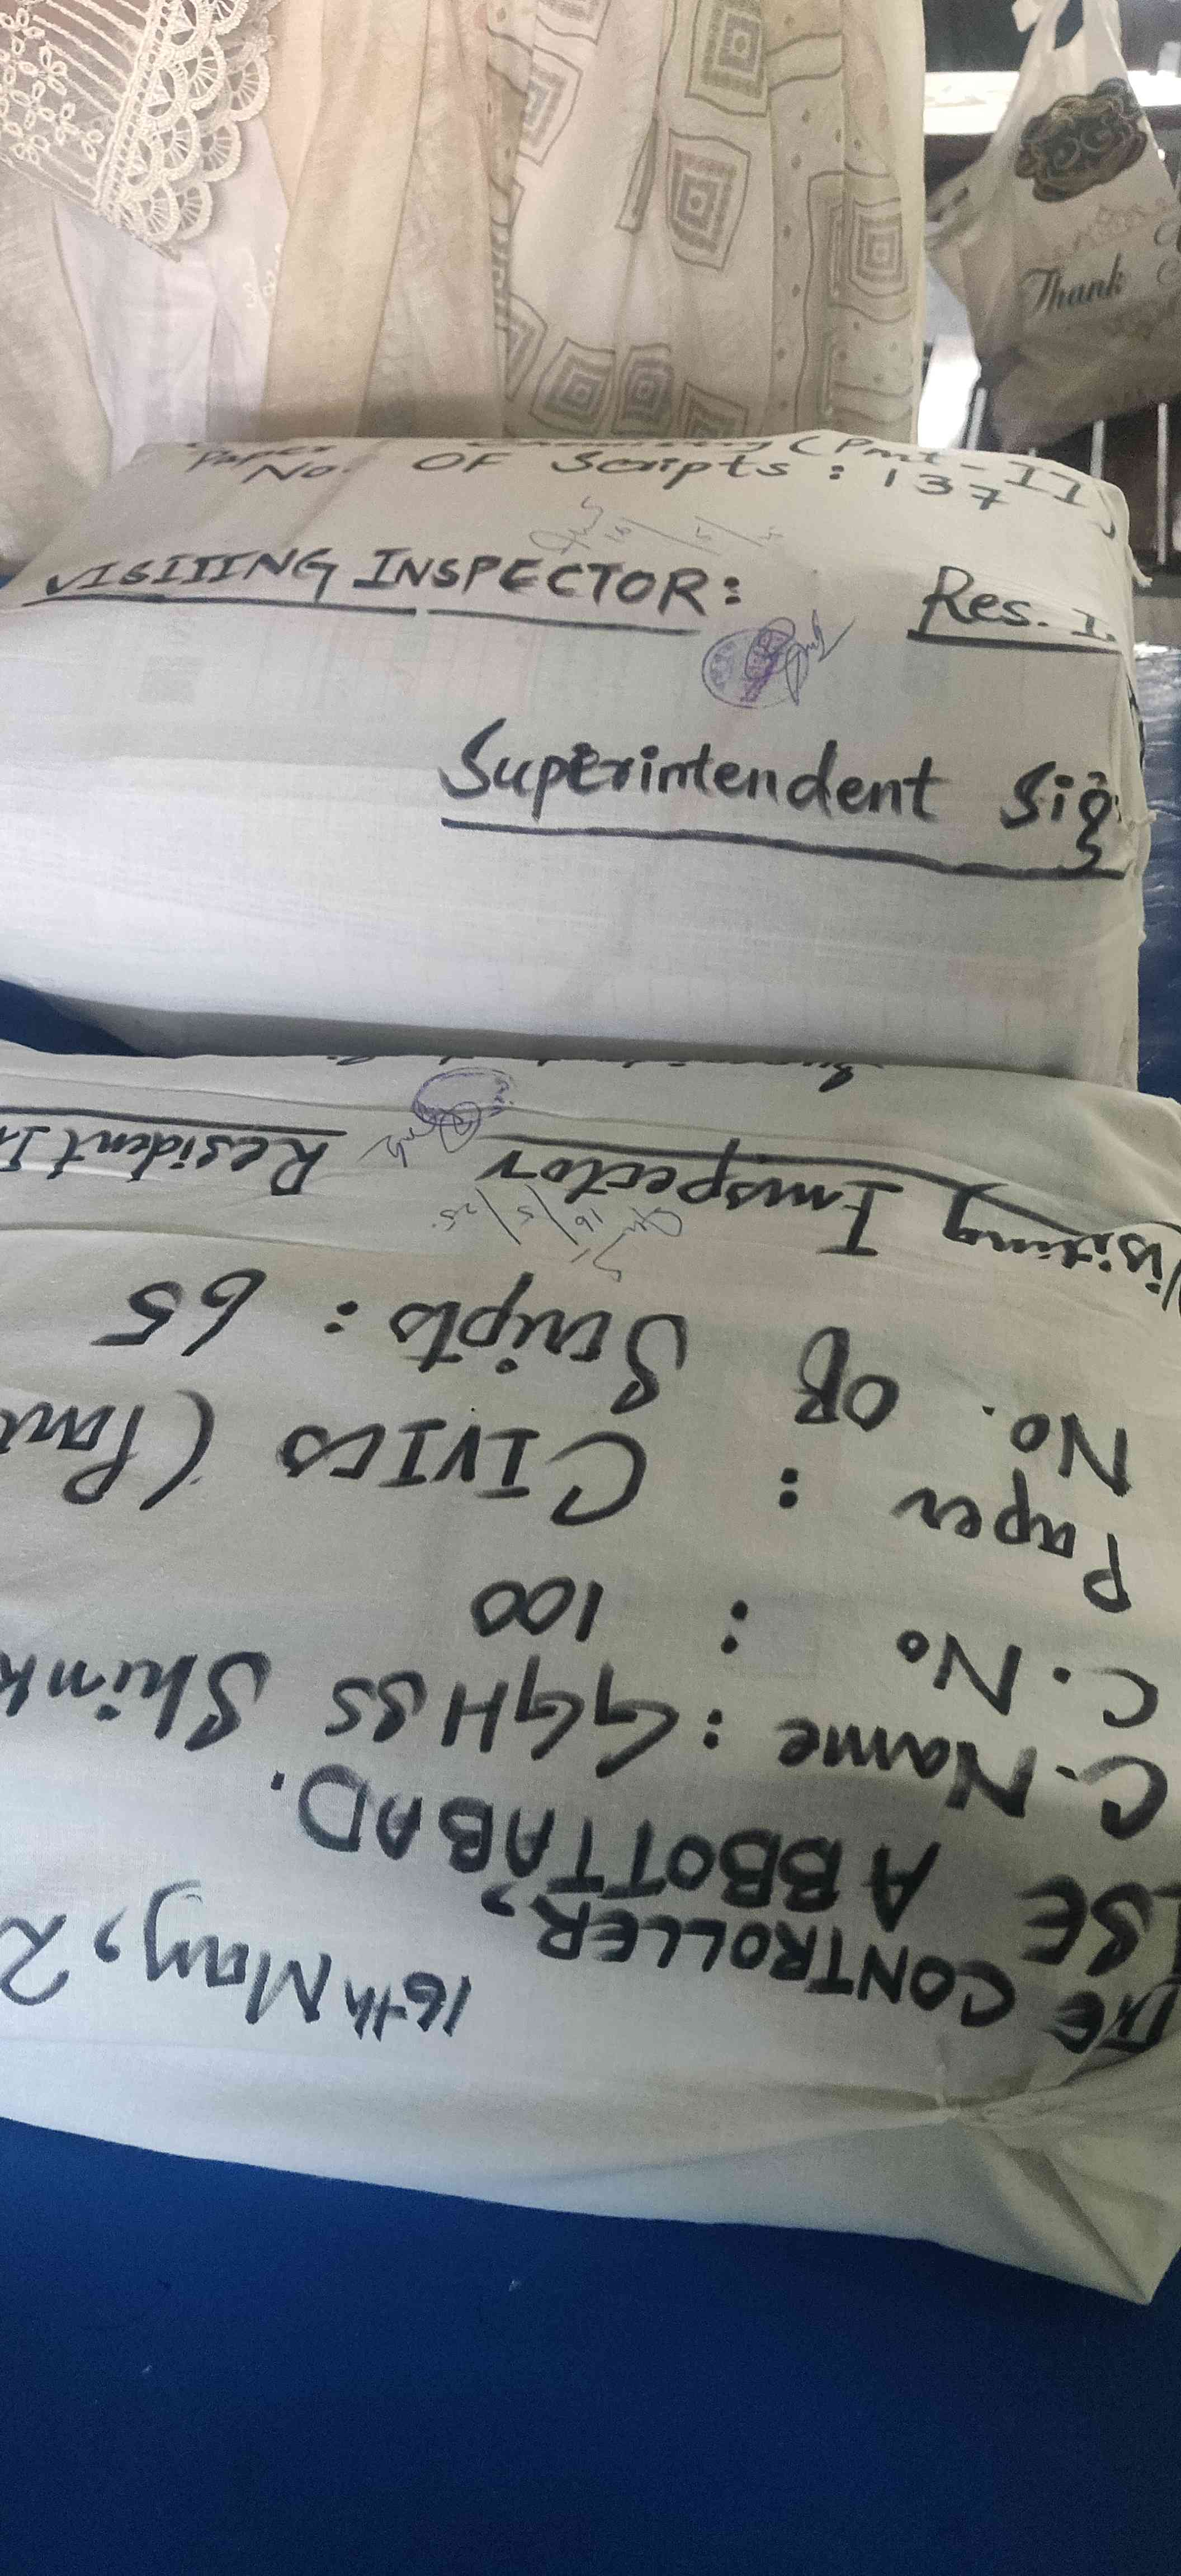 Thank
Paper (Part-II)
No. OF Scripts: 137
VISITING INSPECTOR: Res. I
Superintendent Sig
16th May, 2
CONTROLLER,
ISE ABBOTTABAD.
C. Name : GGHSS Shink
C. No : 100
Paper : CIVICS (Part
No. OF Scripts: 65
16/5/25
Visiting Inspector Resident In